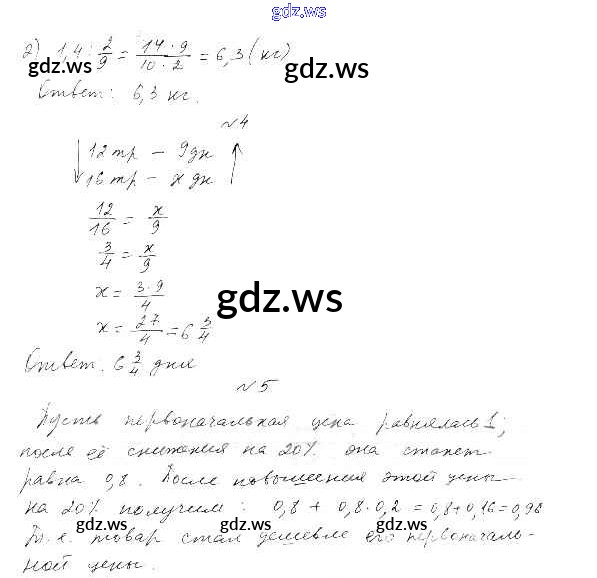 gdz.ws
2) 1,4 : 2/9 = 14·9/10·2 = 6,3 (кг)
gdz.ws gdz.ws
Ответ: 6,3 кг.
№4
↓ 12 тр – 9 дн ↑
16 тр – x дн
12/16 = x/9
3/4 = x/9
x = 3·9/4
gdz.ws
x = 27/4 = 6 3/4
Ответ: 6 3/4 дня
№5
Пусть первоначальная цена равнялась 1;
после её снижения на 20% она станет
равна 0,8. После повышения этой цены
на 20% получим: 0,8 + 0,8·0,2 = 0,8+0,16=0,96
gdz.ws gdz.ws gdz.ws
Т.е. товар стал дешевле его первоначаль-
ной цены.
gdz.ws